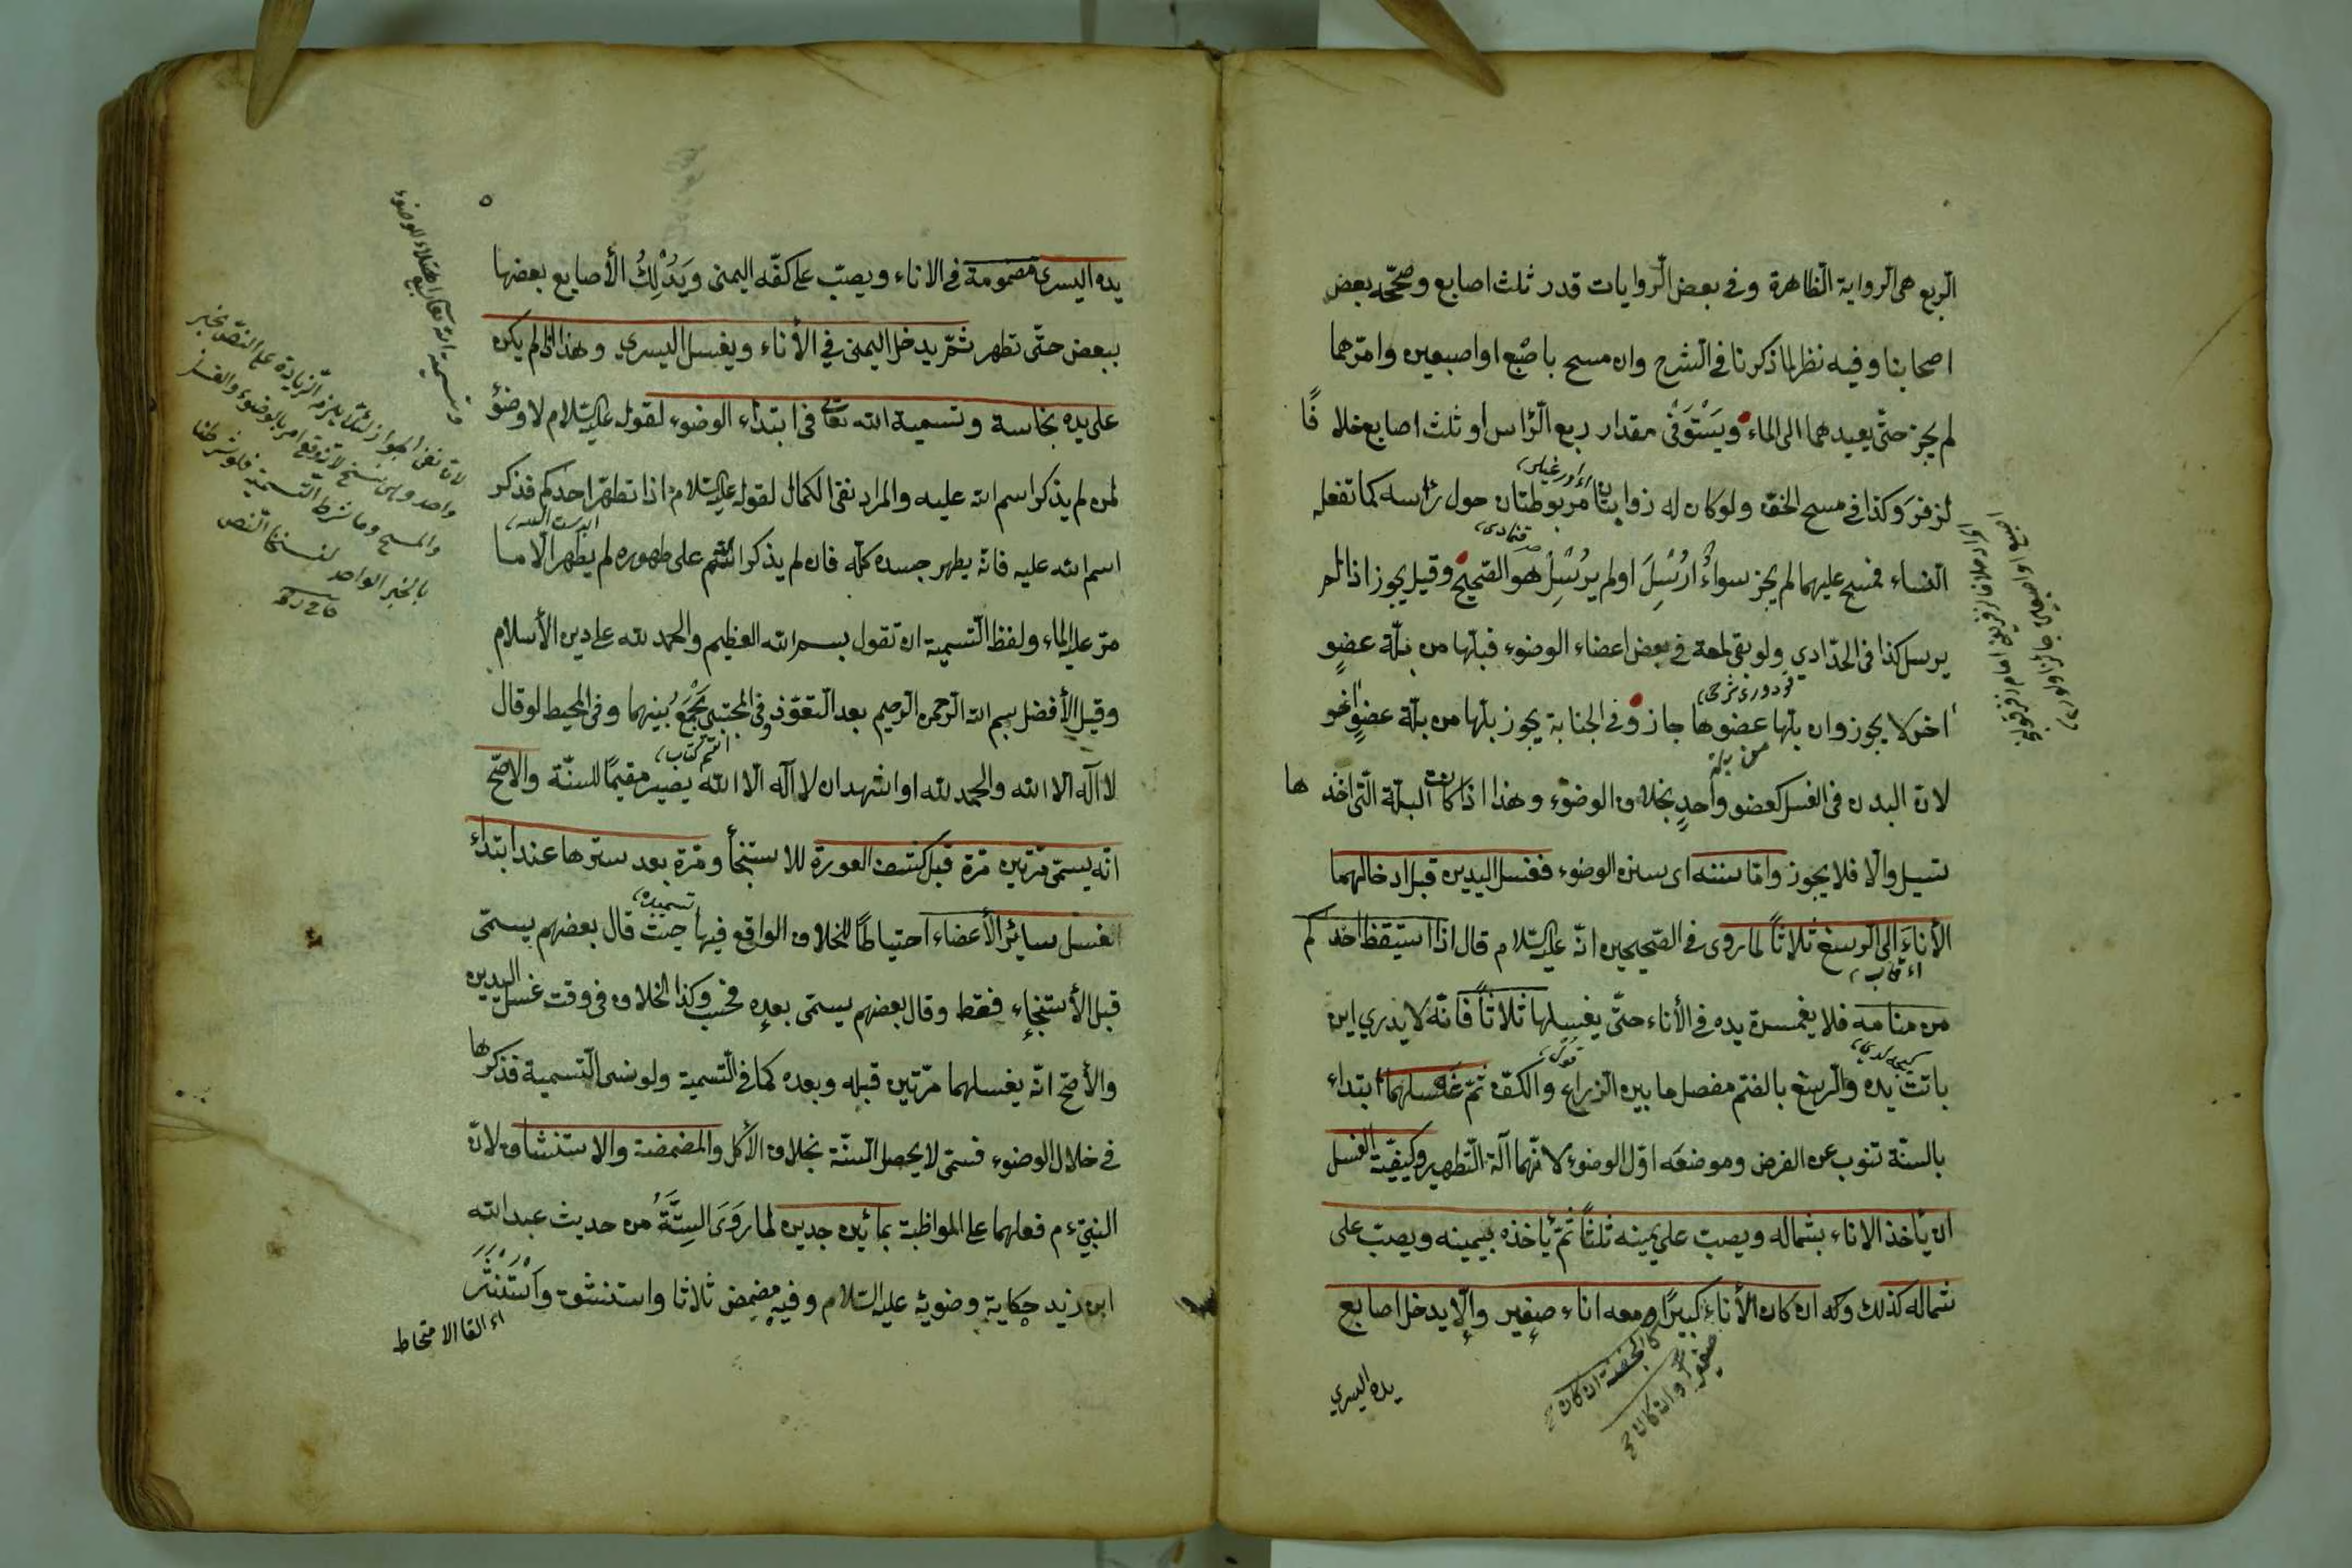 الربع هى الرواية الظاهرة وفى بعض الروايات قدر ثلث اصابع وصححه بعض
اصحابنا وفيه نظر لما ذكرنا فى الشرح وان مسح باصبع او اصبعين وامرهما
لم يجز حتى يعيدهما الى الماء ويستوفى مقدار ربع الراس او ثلث اصابع خلافا
لزفر وكذا فى مسح الخف ولو كان له ذوابتان مربوطتان حول راسه كما تفعله
النساء فمسح عليهما لم يجز سواء ارسل او لم يرسل هو الصحيح وقيل يجوز اذا لم
يرسل كذا فى الحدادي ولو بقى لمعة فى بعض اعضاء الوضوء فبلها من بلة عضو
اخر لا يجوز وان بلها عضوها جاز وفى الجنابة يجوز بلها من بلة عضو اخر
لان البدن فى الغسل كعضو واحد بخلاف الوضوء وهذا اذا كانت البلة التى اخذها
تسيل والا فلا يجوز واما سننه اى سنن الوضوء فغسل اليدين قبل ادخالهما
الأناء الى الرسغ ثلاثا لما روى فى الصحيحين انه عليه السلام قال اذا استيقظ احدكم
من منامه فلا يغمسن يده فى الأناء حتى يغسلها ثلاثا فانه لا يدري اين
باتت يده والرسغ بالضم مفصل ما بين الذراع والكف ثم غسلهما ابتداء
بالسنة تنوب عن الفرض وموضعه اول الوضوء لانهما آلة التطهير وكيفية الغسل
ان يأخذ الاناء بشماله ويصب على يمينه ثلثا ثم يأخذه بيمينه ويصب على
شماله كذلك وكه ان كان الأناء كبيرا ومعه اناء صغير والا يدخل اصابع
يده اليسري
يده اليسرى مضمومة فى الاناء ويصب على كفه اليمنى ويدلك الأصابع بعضها
ببعض حتى تطهر ثم يدخل اليمنى فى الأناء ويغسل اليسرى وهذا اذا لم يكن
على يده نجاسة وتسمية الله تعالى فى ابتداء الوضوء لقوله عليه السلام لا وضوء
لمن لم يذكر اسم الله عليه والمراد نفى الكمال لقوله عليه السلام اذا تطهر احدكم فذكر
اسم الله عليه فانه يطهر جسده كله فان لم يذكر اسم على طهوره لم يطهر الا ما
مر عليه الماء ولفظ التسمية ان تقول بسم الله العظيم والحمد لله على دين الأسلام
وقيل الأفضل بسم الله الرحمن الرحيم بعد التعوذ وفى المجتبى يجمع بينهما وفى المحيط لو قال
لا اله الا الله والحمد لله او اشهد ان لا اله الا الله يصير مقيما للسنة والاصح
انه يسمى مرتين مرة قبل كشف العورة للاستنجأ ومرة بعد سترها عند ابتداء
الغسل سائر الأعضاء احتياطا للخلاف الواقع فيها حيث قال بعضهم يسمى
قبل الأستنجاء فقط وقال بعضهم يسمى بعده فحسب وكذا الخلاف فى وقت غسل اليدين
والأصح انه يغسلهما مرتين قبله وبعده كما فى التسمية ولو نسى التسمية فذكرها
فى خلال الوضوء فسمى لا يحصل السنة بخلاف الأكل والمضمضة والاستنشاق لان
النبى م فعلهما على المواظبة بمائين جديدين لما روى الستة من حديث عبد الله
ابن زيد حكاية وضوئه عليه السلام وفيه مضمض ثلاثا واستنشق واستنثر